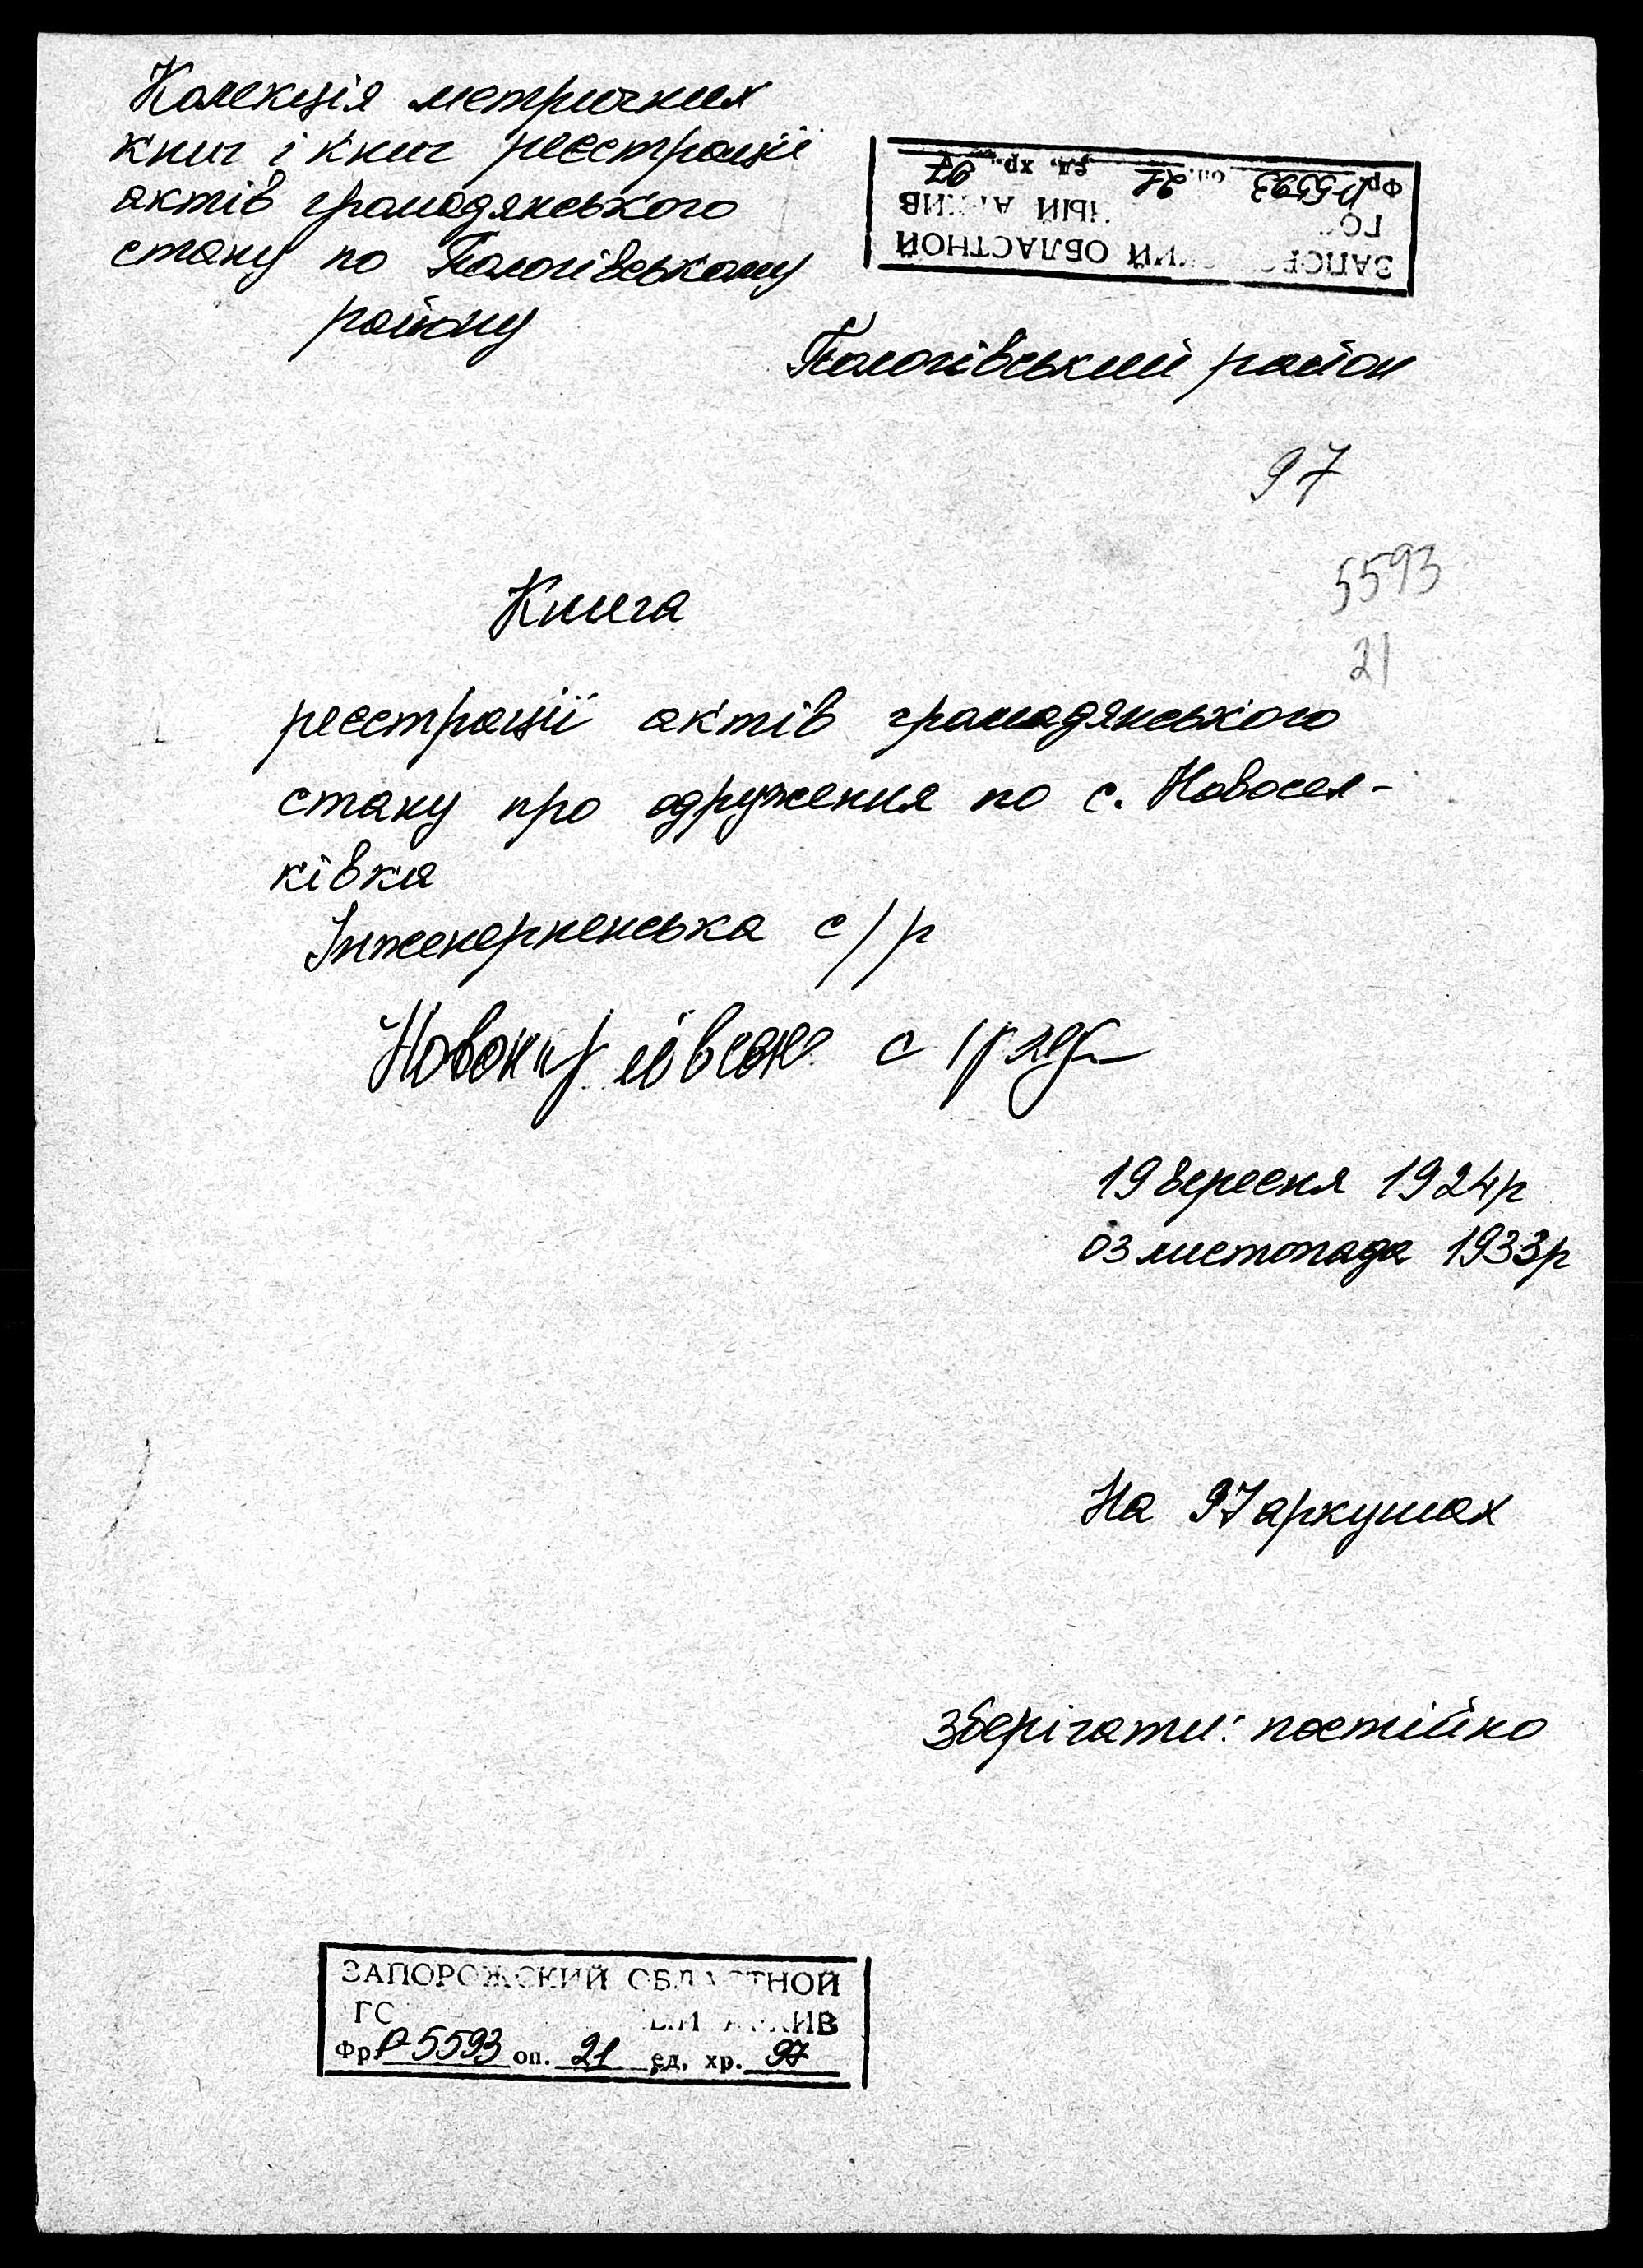 Колекція метричних
книг і книг реєстрації
актів громадянського
стану по Пологівському
району
ЗАПОРОЖСКИЙ ОБЛАСТНОЙ
АРХИВ
Фр Р-5593 оп. 21 ед. хр. 97
Пологівський район
97
5593
21
Книга
реєстрації актів громадянського
стану про одруження по с. Новосел-
ківка
Інженерненська с/р
с/рада
19 вересня 1924р
03 листопада 1933р
На 97 аркушах
Зберігати: постійно
ЗАПОРОЖСКИЙ ОБЛАСТНОЙ
АРХИВ
Фр Р-5593 оп. 21 ед. хр. 97